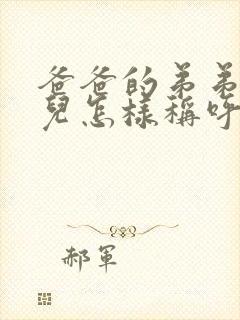 爸爸的弟弟
兒怎樣稱呼
郝軍